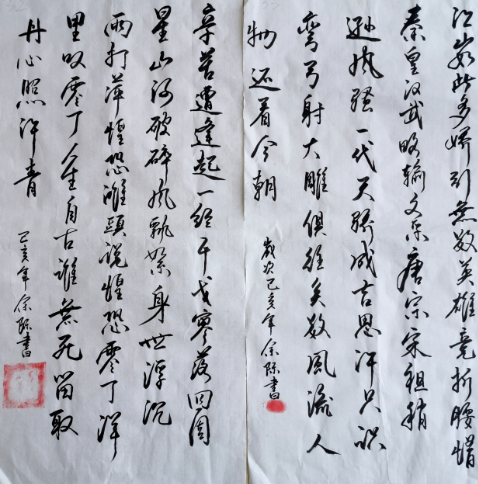 江山如此多娇引無数英雄竞折腰惜
秦皇汉武略输文采唐宗宋祖稍
逊风骚一代天骄成吉思汗只识
弯弓射大雕俱往矣数风流人
物还看今朝
歲次己亥年余陈書
辛苦遭逢起一经干戈寥落四周
星山河破碎风飘絮身世浮沉
雨打萍惶恐滩頭说惶恐零丁洋
里叹零丁人生自古谁無死留取
丹心照汗青
己亥年余陈書